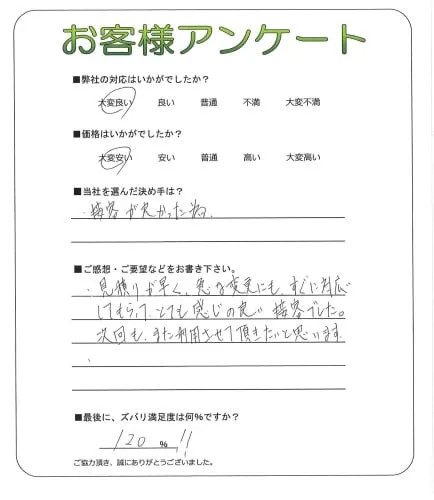 お客様アンケート
■弊社の対応はいかがでしたか？
大変良い 良い 普通 不満 大変不満
■価格はいかがでしたか？
大変安い 安い 普通 高い 大変高い
■当社を選んだ決め手は？
・接客が良かった為。
■ご感想・ご要望などをお書き下さい。
・見積りが早く、急な変更にも、すぐに対応
してもらって、とても感じの良い接客でした。
次回も、また利用させて頂きたいと思います
■最後に、ズバリ満足度は何％ですか？
120 ％ !!
ご協力頂き、誠にありがとうございました。